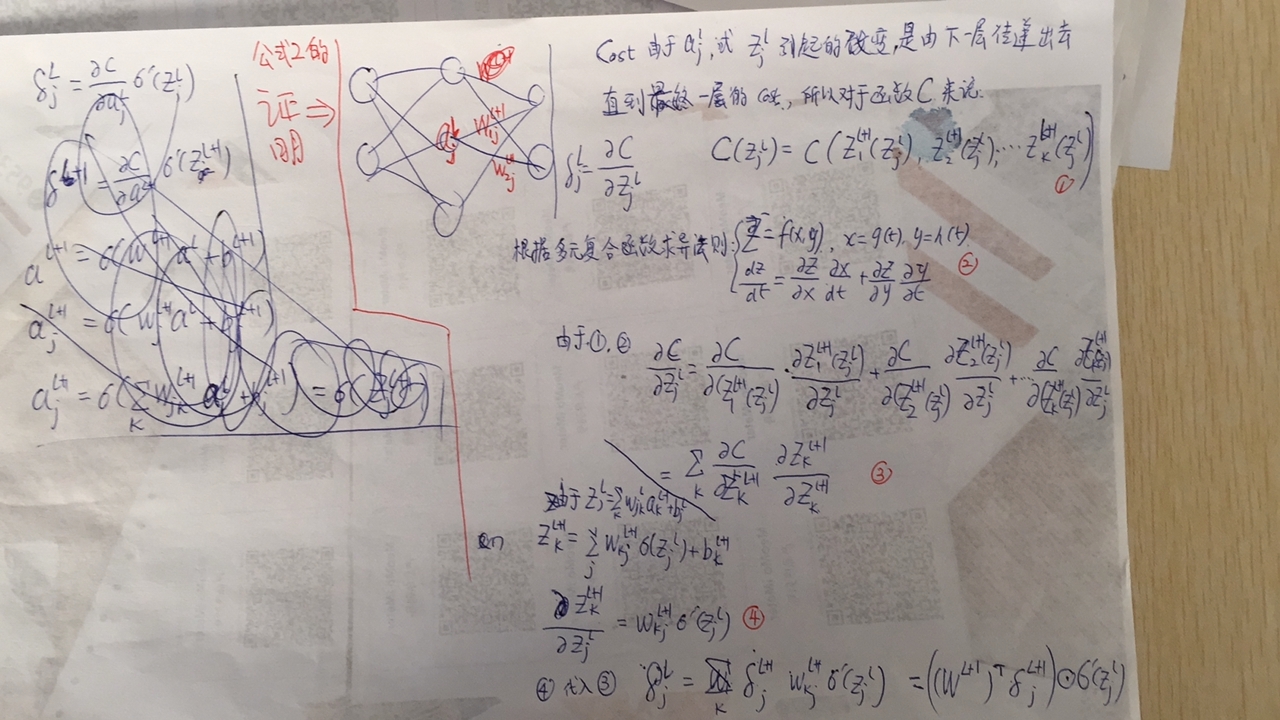 δ_j^L = ∂C/∂a_j^L σ'(z_j^L)
δ^{L+1} = ∂C/∂a^L σ'(z^{L+1})
a^{L+1} = σ(w^{L+1} a^L + b^{L+1})
a_j^{L+1} = σ(w^{L+1} a^L + b^{L+1})
a_j^{L+1} = σ(Σ_k w_{jk}^{L+1} a^L + b_j^{L+1}) = σ(z_j^{L+1})
公式2的
证 ⇒
明
a_j^L
w_{1j}^{L+1}
w_{2j}^{L+1}
Cost 由于 a_j^L, 或 z_j^L 引起的改变,是由下一层传递出去
直到最终一层的 cost, 所以对于函数 C 来说.
δ_j^L = ∂C/∂z_j^L
C(z_j^L) = C(z_1^{L+1}(z_j^L), z_2^{L+1}(z_j^L), … z_k^{L+1}(z_j^L)) ①
根据多元复合函数求导法则: { z = f(x,y), x=g(t), y=h(t).
dz/dt = ∂z/∂x ∂x/∂t + ∂z/∂y ∂y/∂t ②
由于①,②
∂C/∂z_j^L = ∂C/∂(z_1^{L+1}(z_j^L)) · ∂z_1^{L+1}(z_j^L)/∂z_j^L + ∂C/∂(z_2^{L+1}(z_j^L)) ∂z_2^{L+1}(z_j^L)/∂z_j^L + … ∂C/∂(z_k^{L+1}(z_j^L)) ∂z_k^{L+1}(z_j^L)/∂z_j^L
= Σ_k ∂C/∂z_k^{L+1} ∂z_k^{L+1}/∂z_k^{L+1} ③
由于 z_j^L = Σ_k w_{jk}^L a_k^{L+1} + b_j^L
z_k^{L+1} = Σ_j w_{kj}^{L+1} σ(z_j^L) + b_k^{L+1}
∂z_k^{L+1}/∂z_j^L = w_{kj}^{L+1} σ'(z_j^L) ④
④ 代入 ③ δ_j^L = Σ_k δ_j^{L+1} w_{kj}^{L+1} σ'(z_j^L) = ((W^{L+1})^T δ_j^{L+1}) ⊙ σ'(z_j^L)